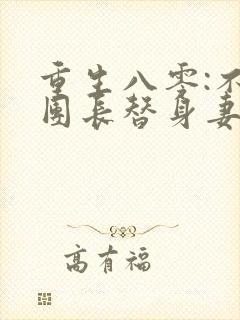 重生八零:不
团长替身妻
高有福